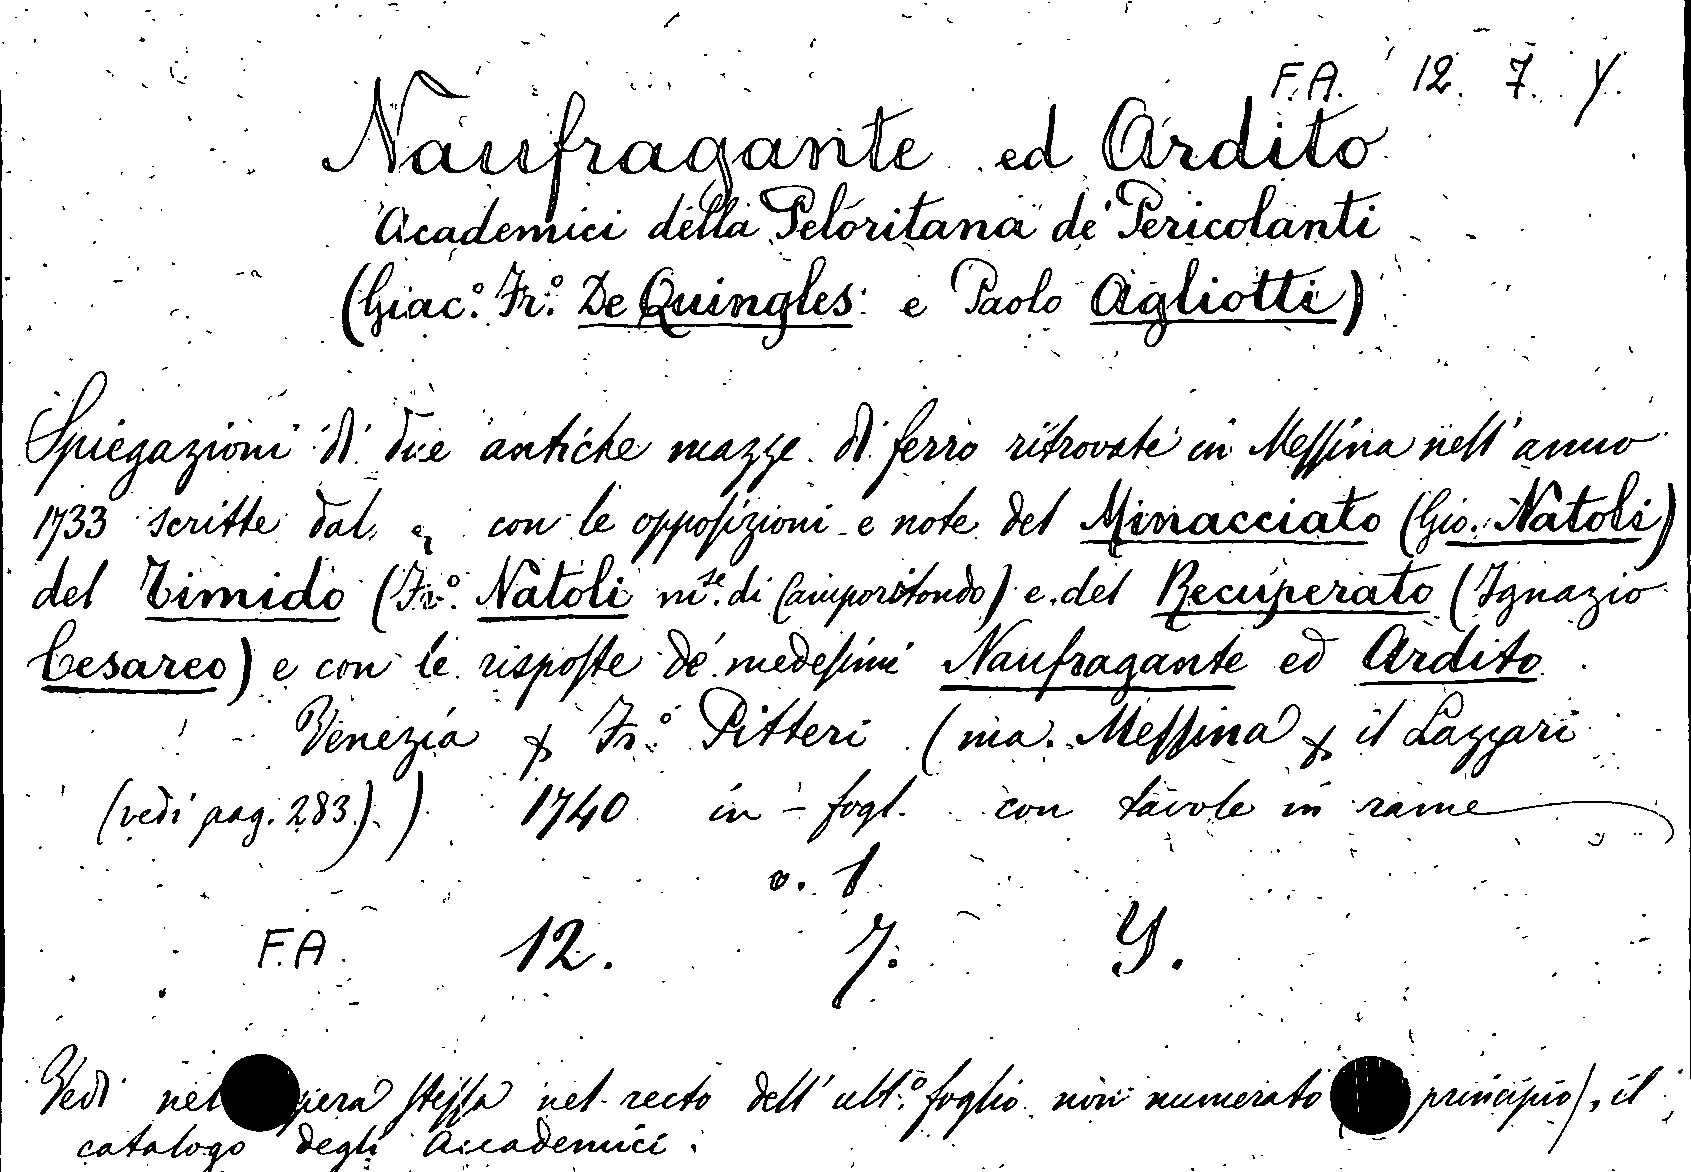 F.A. 12. 7. Y.
Naufragante ed Ardito
Academici della Peloritana de' Pericolanti
(Giac.º Fr.º De Quingles e Paolo Agliotti)
Spiegazioni di due antiche mazze di ferro ritrovate in Messina nell'anno
1733 scritte dal con le opposizioni e note del Minacciato (Gio. Natoli)
del Timido (Fr.º Natoli m.se di Camporotondo) e del Recuperato (Ignazio
Cesareo) e con le risposte de' medesimi Naufragante ed Ardito.
Venezia Fr.º Pitteri (ma Messina il Lazzari
(vedi pag. 283.) ) 1740 in-fogl. con tavole in rame
v. 1
F.A. 12. 7. Y.
Vedi nel pera stessa nel recto dell'ult.º foglio non numerato principio), il
catalogo degli Accademici.